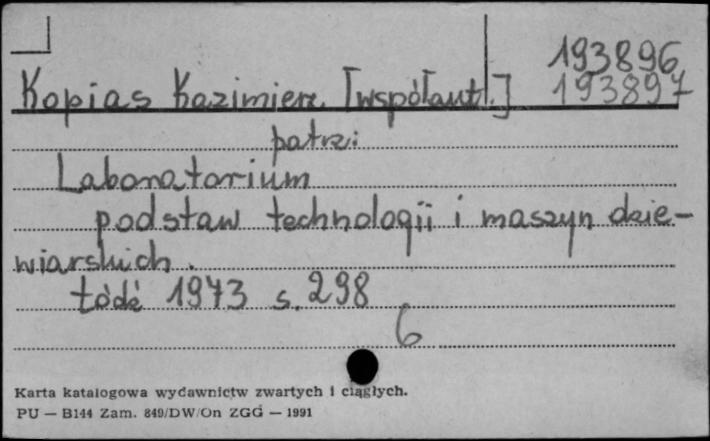 193896
Kopias Kazimierz [współaut.] 193897
patrz:
Laboratorium
podstaw technologii i maszyn dzie-
wiarskich.
Łódź 1973 s. 298
6
Karta katalogowa wydawnictw zwartych i ciągłych.
PU — B144 Zam. 849/DW/On ZGG — 1991